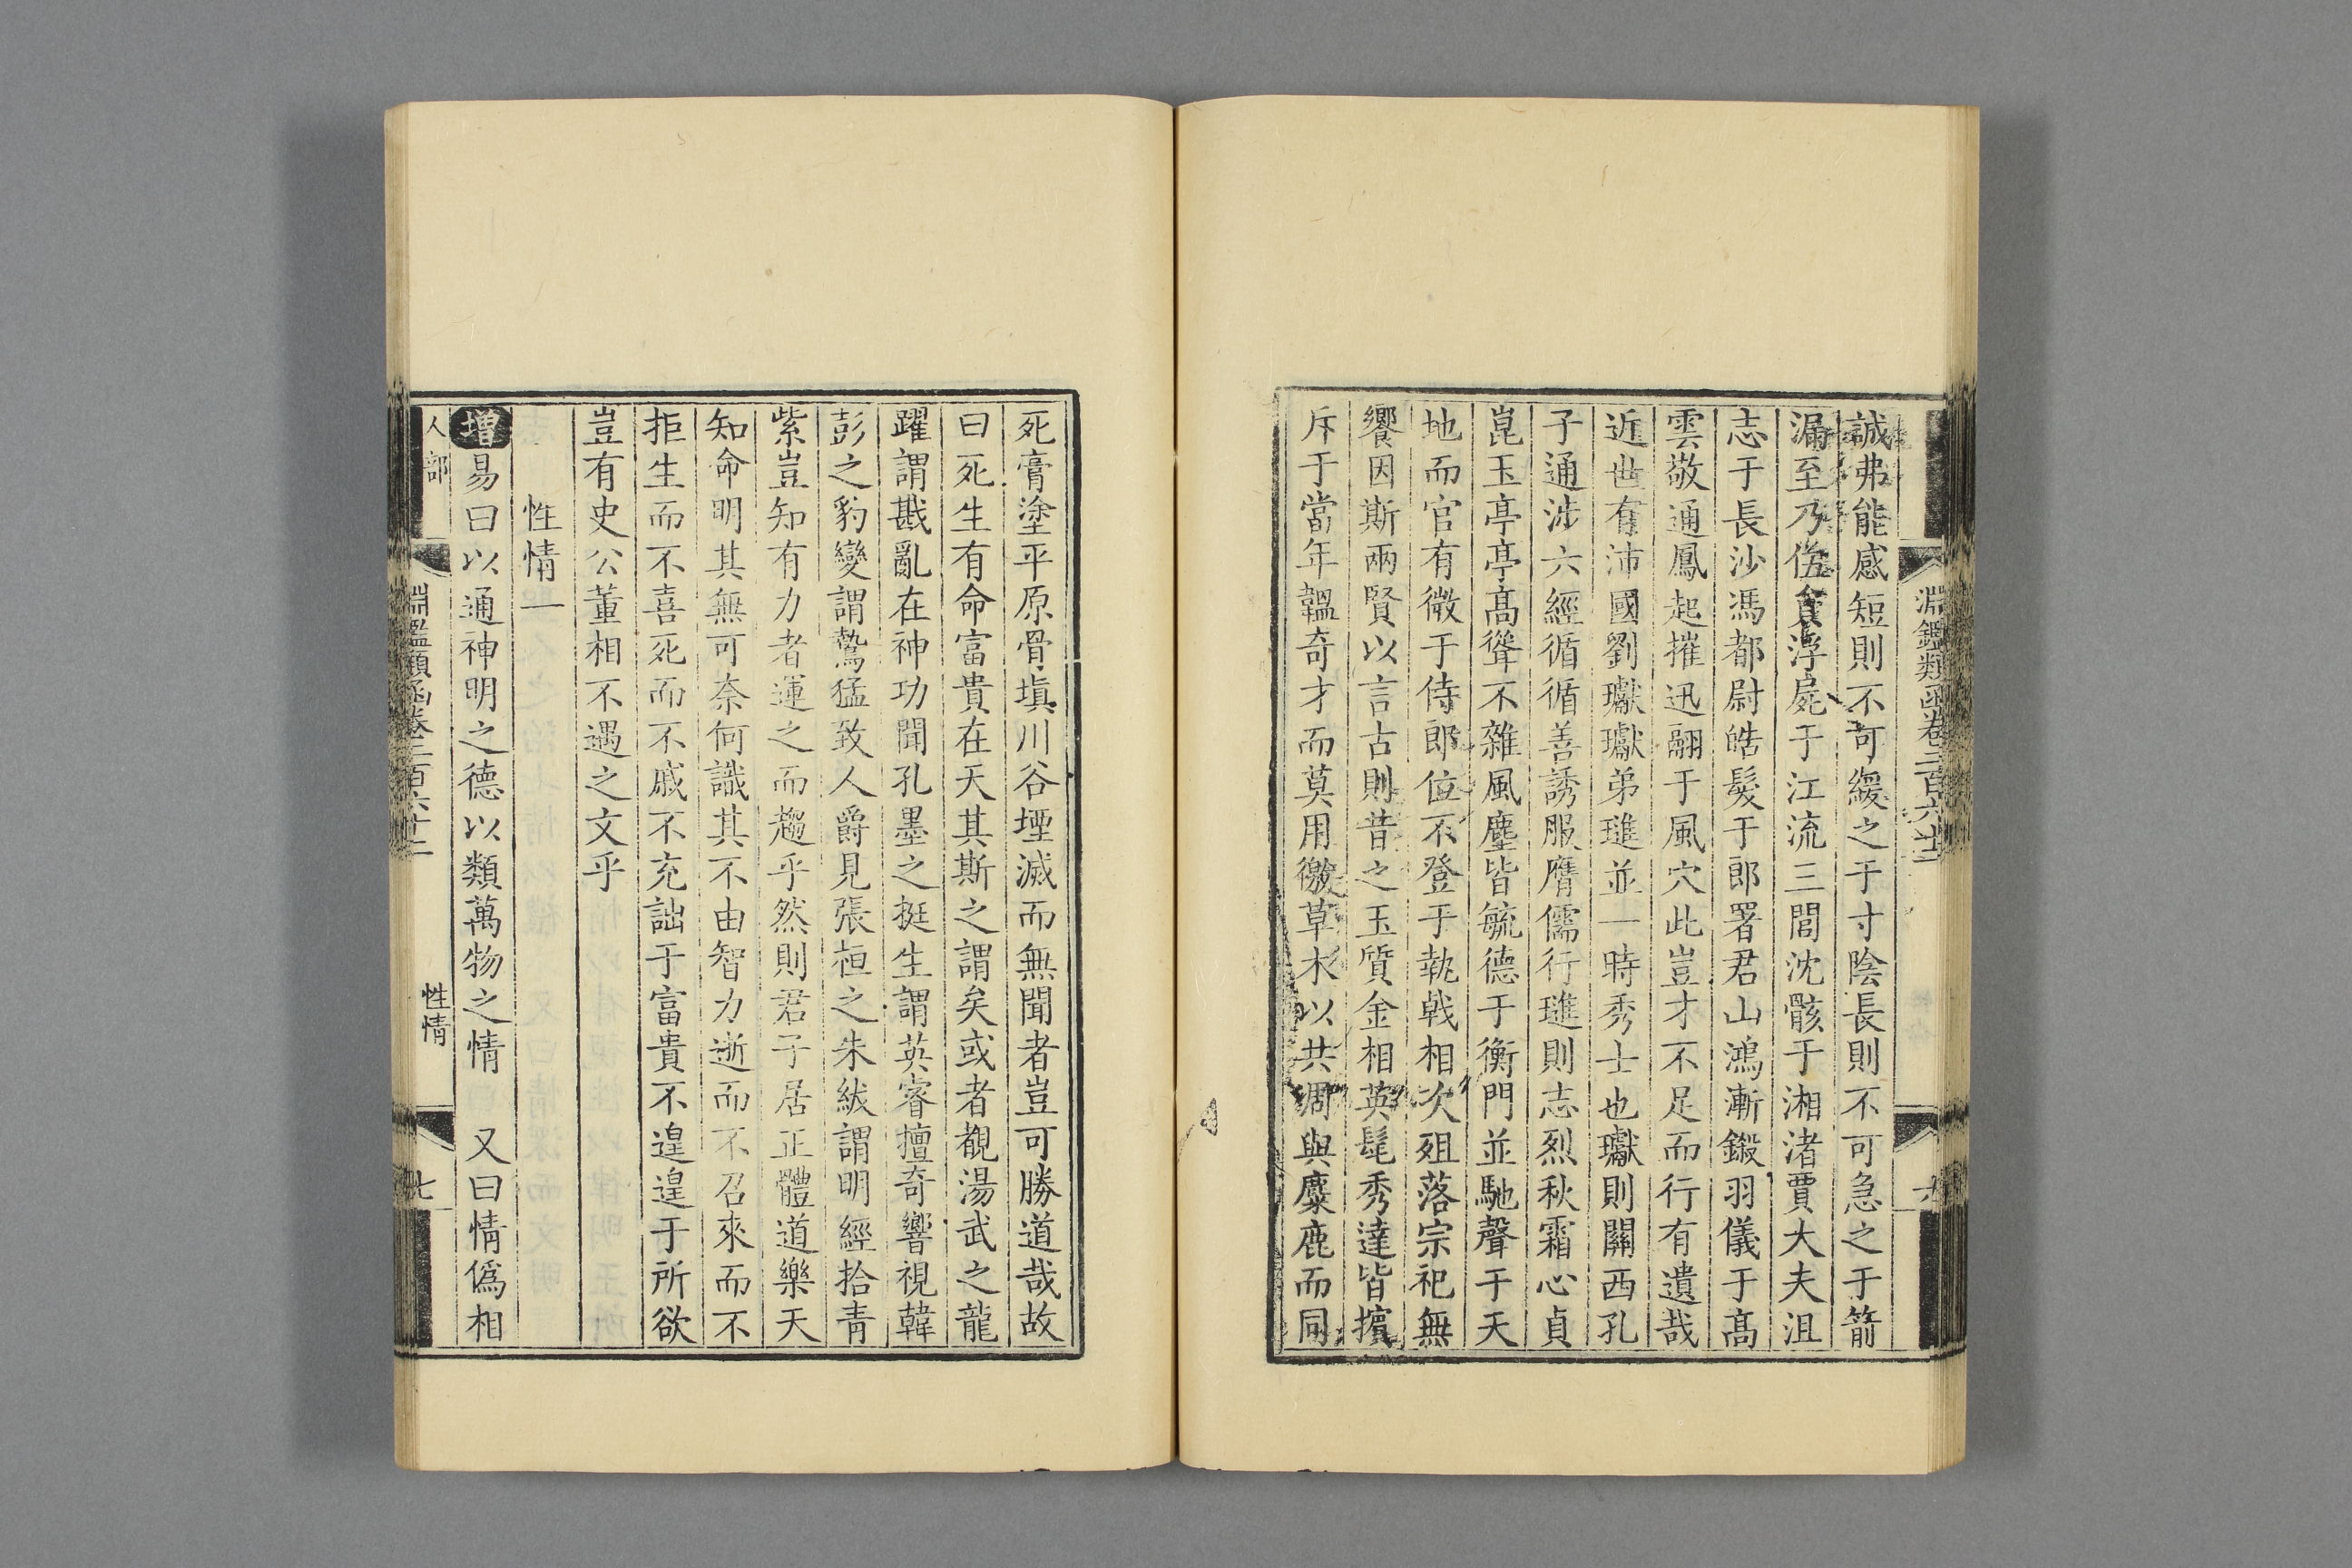 誠弗能感短則不可緩之于寸陰長則不可急之于箭
漏至乃伍員浮屍于江流三閭沈骸于湘渚賈大夫沮
志于長沙馮都尉皓髮于郎署君山鴻漸鎩羽儀于高
雲敬通鳳起摧迅翮于風穴此豈才不足而行有遺哉
近世有沛國劉瓛瓛弟璡並一時秀士也瓛則關西孔
子通涉六經循循善誘服膺儒行璡則志烈秋霜心貞
崑玉亭亭高聳不雜風塵皆毓德于衡門並馳聲于天
地而官有微于侍郎位不登于執戟相次殂落宗祀無
饗因斯兩賢以言古則昔之玉質金相英髦秀達皆擯
斥于當年韞奇才而莫用徼草木以共凋與麋鹿而同
淵鑑類函卷二百六十二
死膏塗平原骨塡川谷堙滅而無聞者豈可勝道哉故
曰死生有命富貴在天其斯之謂矣或者覩湯武之龍
躍謂戡亂在神功聞孔墨之挺生謂英睿擅奇響視韓
彭之豹變謂鷙猛致人爵見張桓之朱紱謂明經拾靑
紫豈知有力者運之而趨乎然則君子居正體道樂天
知命明其無可奈何識其不由智力逝而不召來而不
拒生而不喜死而不戚不充詘于富貴不遑遑于所欲
豈有史公董相不遇之文乎
性情一
增易曰以通神明之德以類萬物之情 又曰情僞相
人部 淵鑑類函卷二百六十二 性情 七